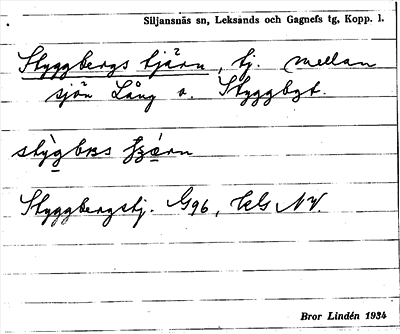 Siljansnäs sn, Leksands och Gagnefs tg, Kopp. l.
Styggbergs tjärn, tj. mellan
sjön Lång o. Styggbgt.
Styggbergstj. G96, kls NV.
Bror Lindén 1934